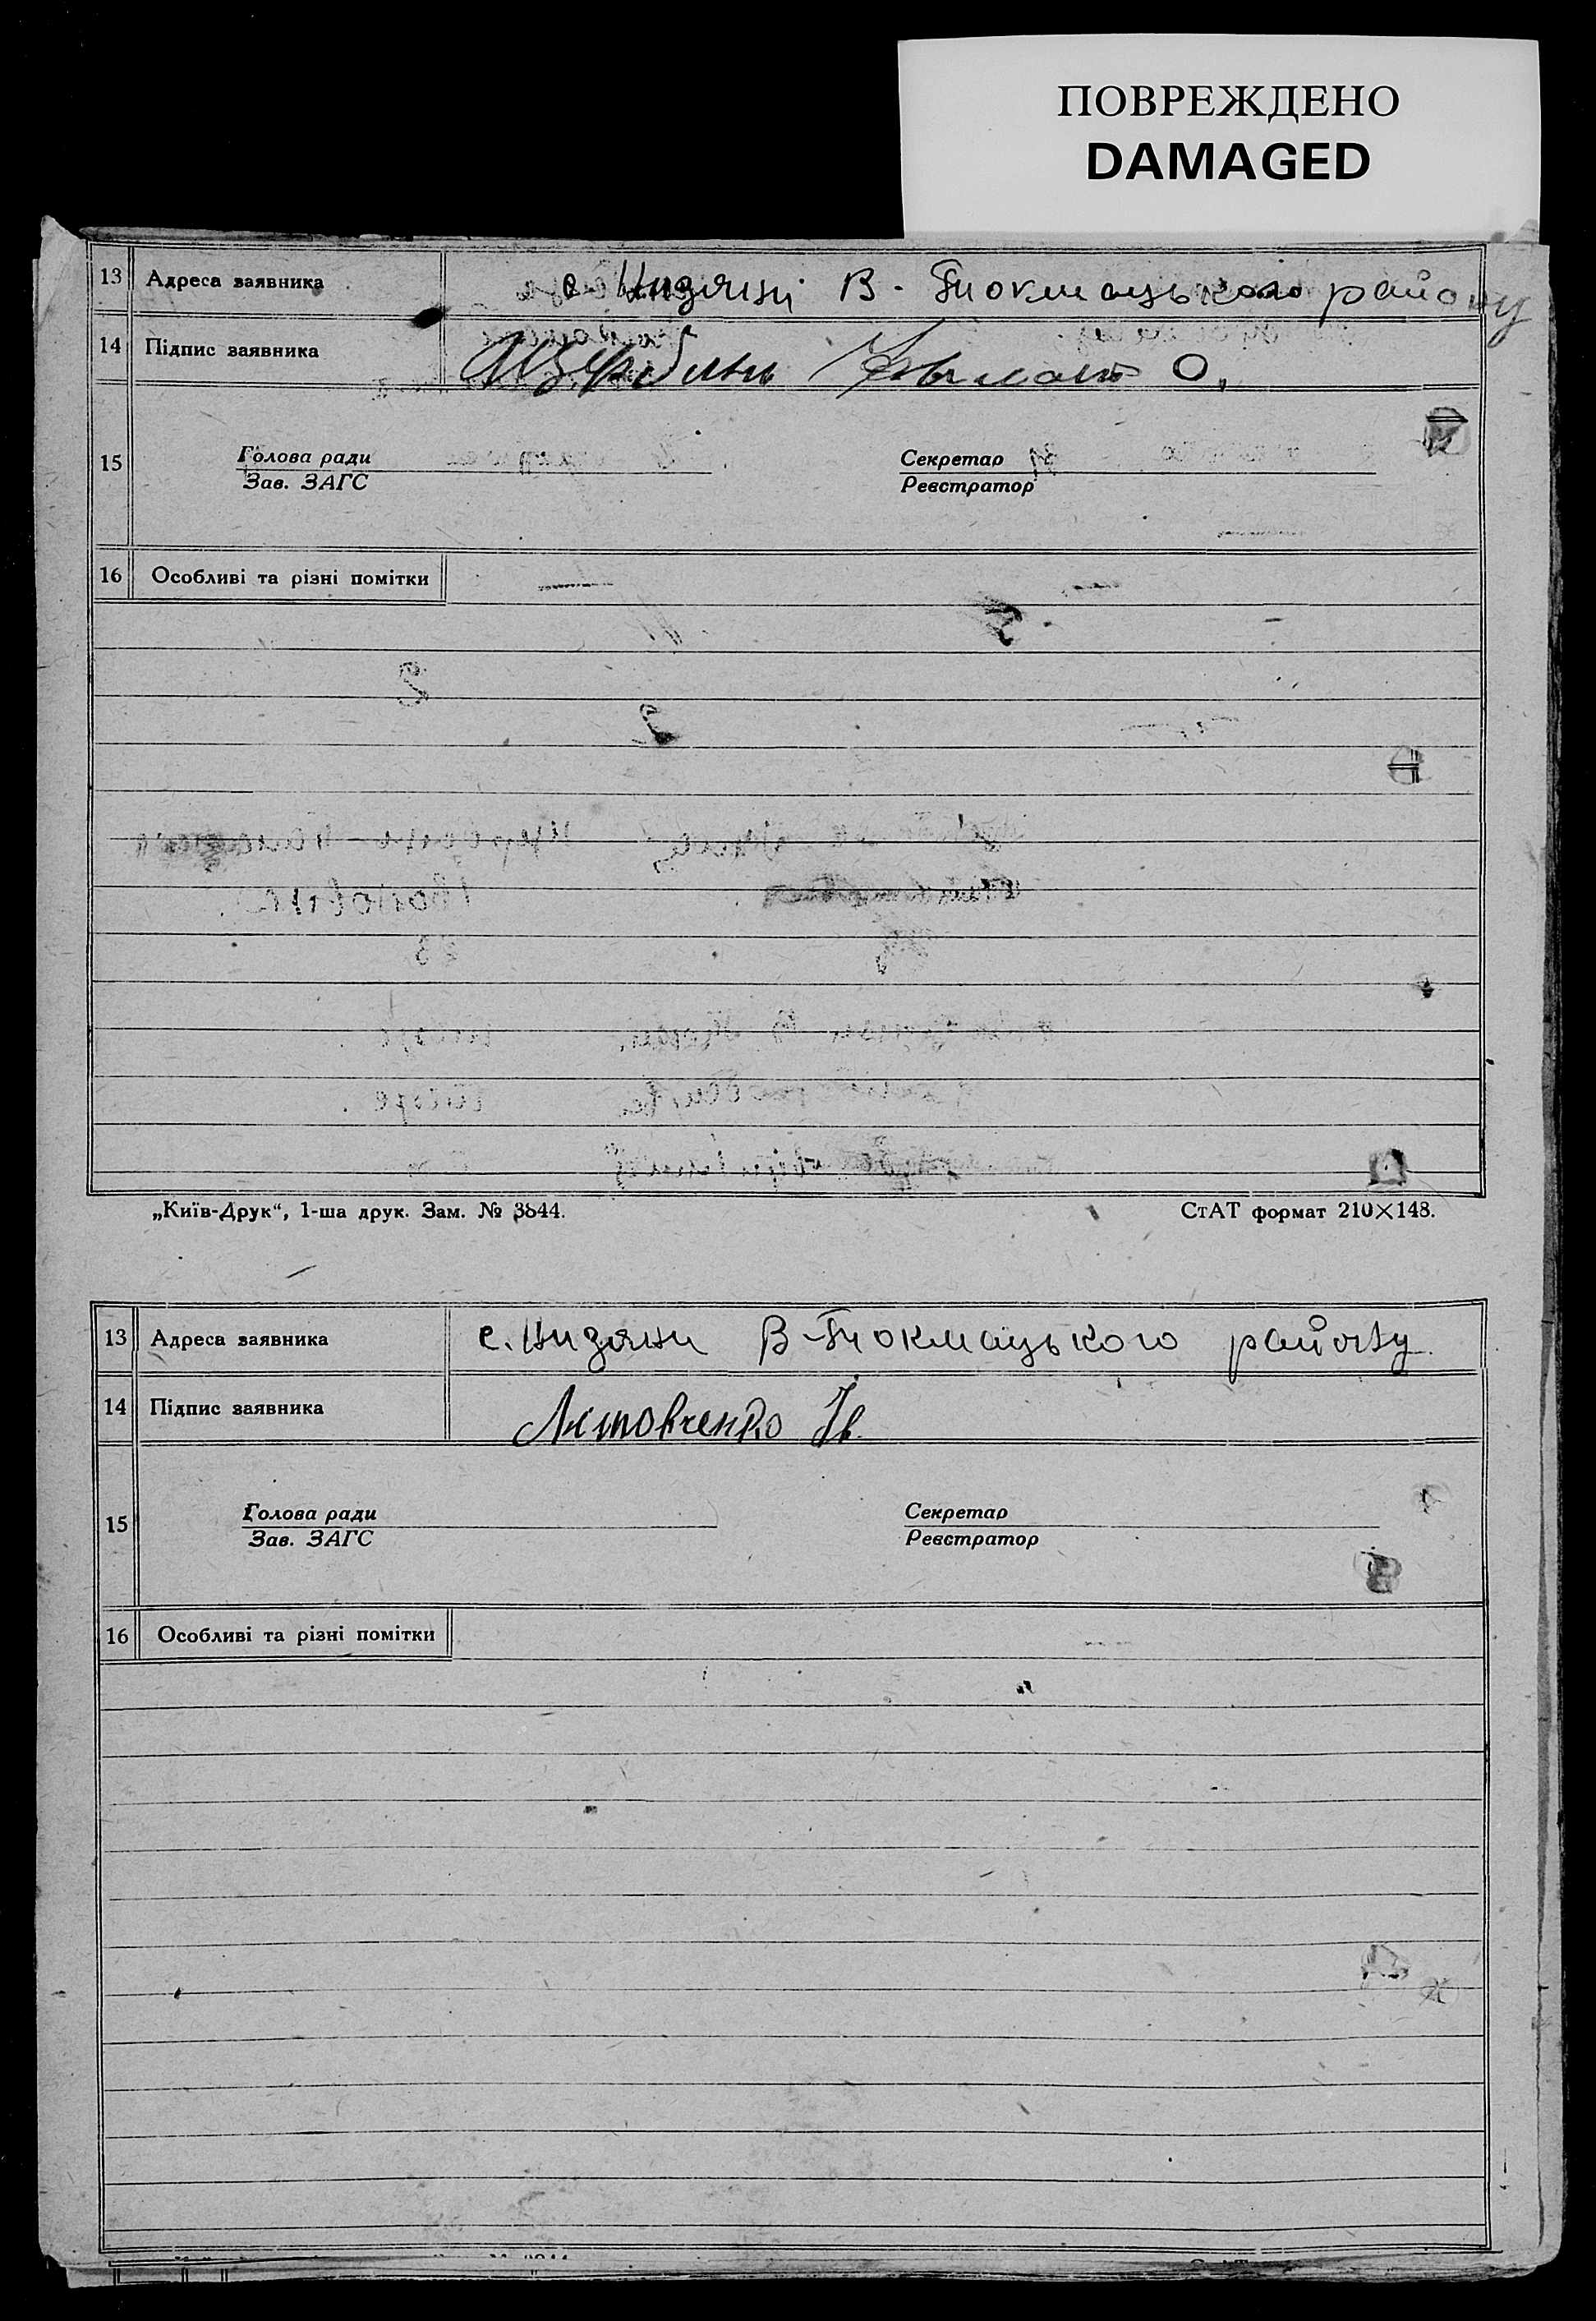 ПОВРЕЖДЕНО
DAMAGED
13 Адреса заявника с. Низяни В-Токмацького району
14 Підпис заявника О.
15 Голова ради Секретар
Зав. ЗАГС Реєстратор
16 Особливі та різні помітки
„Київ-Друк“, 1-ша друк. Зам. № 3844. СтАТ формат 210×148.
13 Адреса заявника с. Низяни В-Токмацького району
14 Підпис заявника Литовченко Ів.
15 Голова ради Секретар
Зав. ЗАГС Реєстратор
16 Особливі та різні помітки